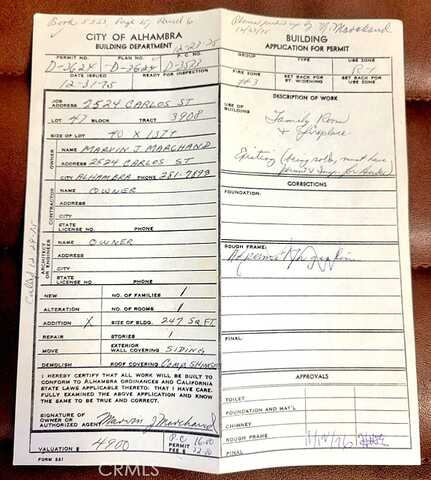 CITY OF ALHAMBRA
BUILDING DEPARTMENT 12-23-75
PERMIT NO. PLAN NO. P.C. NO.
D-3624 D-3624 D-3521
DATE ISSUED READY FOR INSPECTION
12-31-75
JOB ADDRESS 2524 CARLOS ST
LOT 47 BLOCK TRACT 3908
SIZE OF LOT 40 X 137
OWNER
NAME MARVIN J. MARCHAND
ADDRESS 2524 CARLOS ST
CITY ALHAMBRA PHONE 281-7893
CONTRACTOR
NAME OWNER
ADDRESS
CITY
STATE LICENSE NO PHONE
ARCHITECT OR ENGINEER
NAME OWNER
ADDRESS
CITY
STATE LICENSE NO PHONE
Called 12-29-75
NEW NO. OF FAMILIES 1
ALTERATION NO. OF ROOMS 1
ADDITION X SIZE OF BLDG. 247 SQ FT
REPAIR STORIES 1
MOVE EXTERIOR WALL COVERING SIDING
DEMOLISH ROOF COVERING COMP SHINGL
I HEREBY CERTIFY THAT ALL WORK WILL BE BUILT TO
CONFORM TO ALHAMBRA ORDINANCES AND CALIFORNIA
STATE LAWS APPLICABLE THERETO: THAT I HAVE CARE-
FULLY EXAMINED THE ABOVE APPLICATION AND KNOW
THE SAME TO BE TRUE AND CORRECT.
SIGNATURE OF OWNER OR AUTHORIZED AGENT Marvin J Marchand
VALUATION $ 4900 P.C. 16.00
PERMIT FEE $ 32.00
FORM 551
BUILDING
APPLICATION FOR PERMIT
GROUP TYPE USE ZONE
R-1
FIRE ZONE SET BACK BY WIDENING SET BACK FOR USE ZONE
#3
DESCRIPTION OF WORK
USE OF BUILDING
Family Room
& Fireplace
Existing (being sold, must have
CORRECTIONS
FOUNDATION:
ROUGH FRAME:
FINAL
APPROVALS
TOILET
FOUNDATION AND MAT'L
CHIMNEY
ROUGH FRAME
FINAL
CRMLS